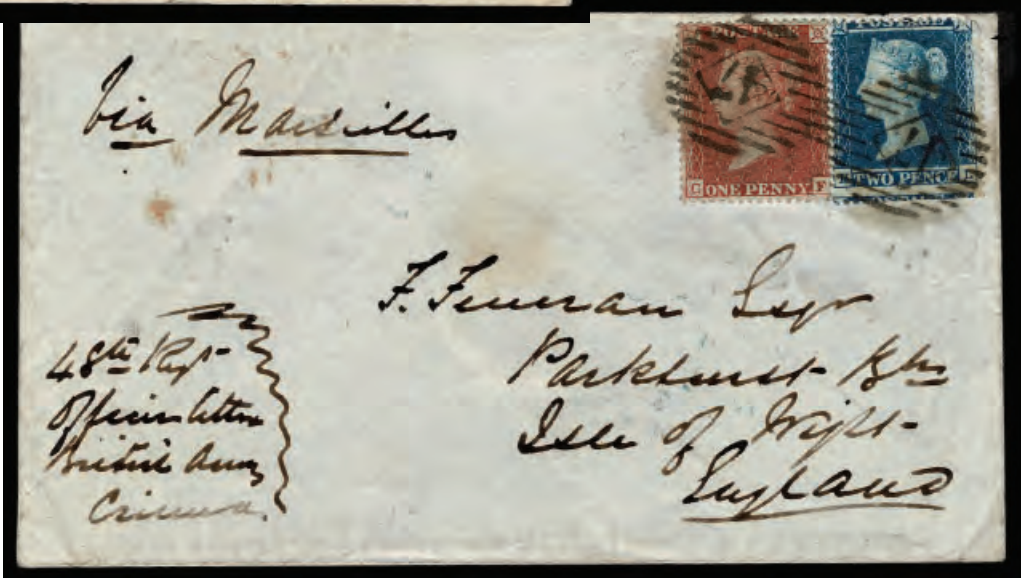 Via Marseilles
POSTAGE
ONE PENNY
C F
POSTAGE
TWO PENCE
F. Esqr
Parkhurst Bks
Isle of Wight
England
48th Regt
Officers letter
British Army
Crimea.